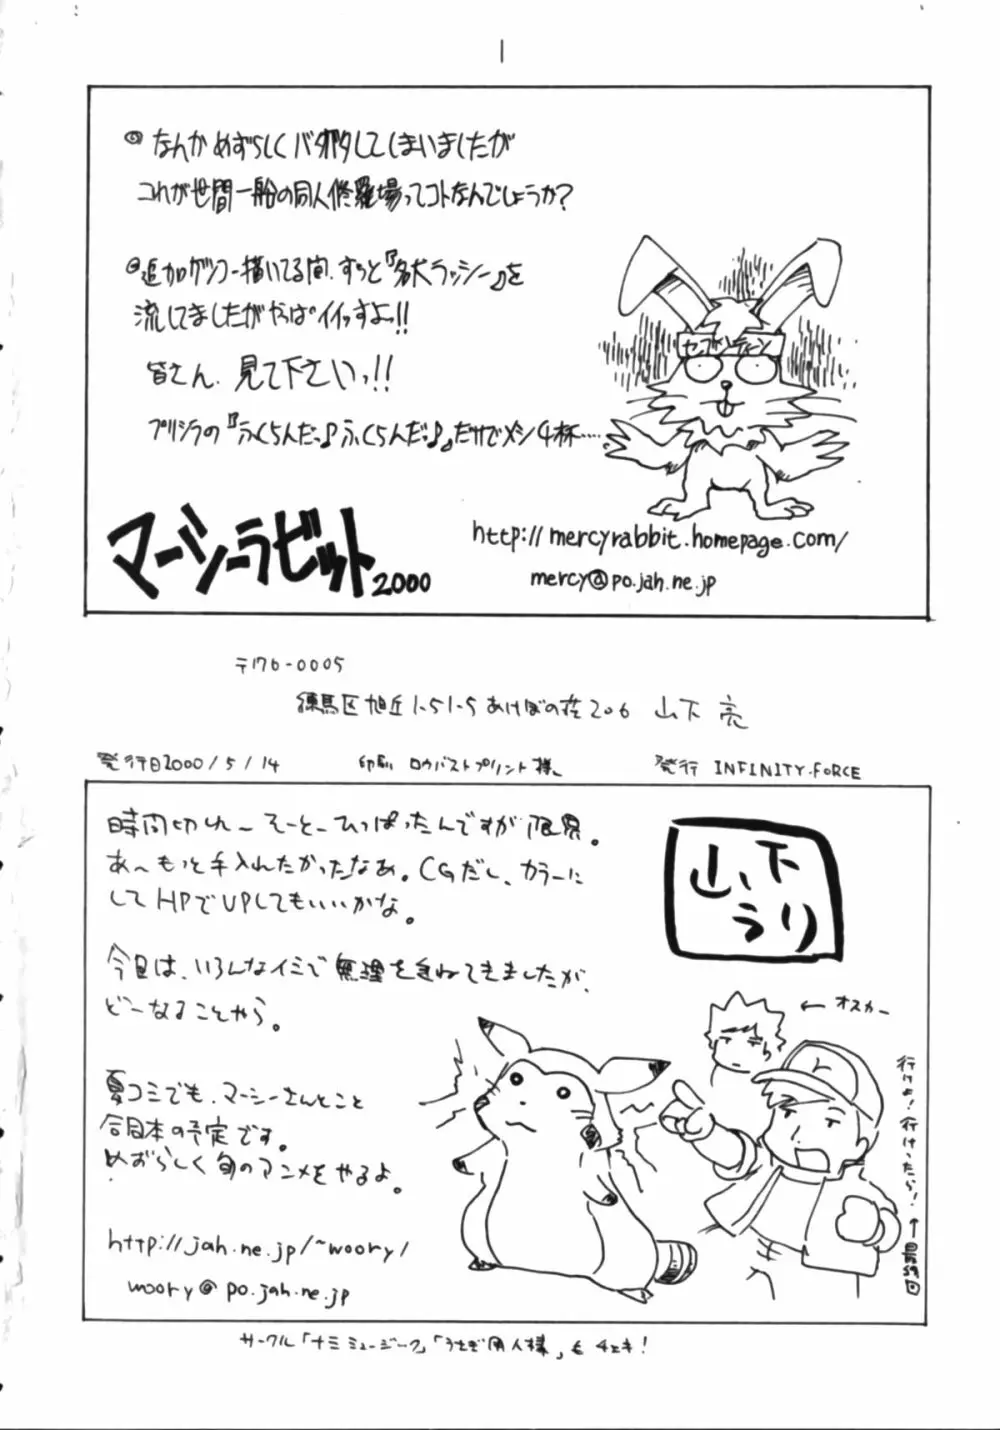 1
◎なんかめずらしくバタバタしてしまいましたが
これが世間一般の同人修羅場ってコトなんでしょうか?
◎追加ゲンコー描いてる間、ずっと『名犬ラッシー』を
流してましたがやっぱイイっすよっ!!
皆さん、見て下さいっ!!
プリシラの『ふくらんだっ♪ふくらんだっ♪』だけでメシ4杯……
セブンティーン
マーシーラビット2000
http://mercyrabbit.homepage.com/
mercy@po.jah.ne.jp
〒176-0005
練馬区旭丘1-51-5あけぼの荘206 山下 亮
発行日2000/5/14 印刷 ロウバストプリント様。 発行 INFINITY-FORCE
時間切れ〜そーとーひっぱったんですが限界。
あ〜もっと手入れたかったなあ。CGだし、カラーに
してHPでUPしてもいいかな。
今回は、いろんなイミで無理を重ねてきましたが、
どーなることやら。
夏コミでも、マーシーさんとこと
合同本の予定です。
めずらしく旬のアニメをやるよ。
http://jah.ne.jp/~woory/
woory@po.jah.ne.jp
山下
うり
←オスカー
行けよ!行けったら!
↑最終回
サークル「ナミミュージーク」「うさぎ同人様」も